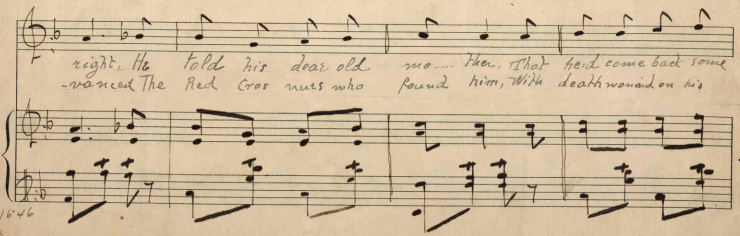 right, He told his dear old mo... ther, That he'd come back some
-vanced The Red Cros nurs who found him, With deathwound on his
1646